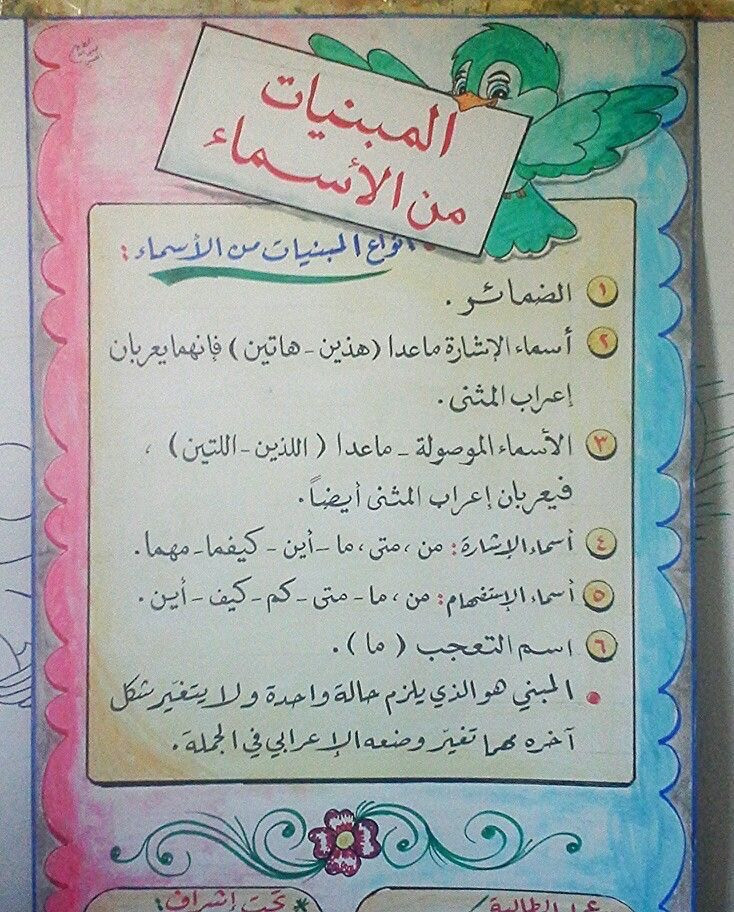 المبنيات
من الأسماء
أنواع المبنيات من الأسماء :
١ الضمائر .
٢ أسماء الإشارة ماعدا (هذين - هاتين) فإنهما يعربان
إعراب المثنى .
٣ الأسماء الموصولة - ماعدا ( اللذين - اللتين ) ،
فيعربان إعراب المثنى أيضاً .
٤ أسماء الإشارة: من ، متى ، ما - أين - كيفما - مهما .
٥ أسماء الإستفهام: من ، ما - متى - كم - كيف - أين .
٦ اسم التعجب ( ما ) .
• المبني هو الذي يلزم حالة واحدة ولا يتغيّر شكل
آخره مهما تغيّر وضعه الإعرابي في الجملة .
الطالبة
* تحت إشراف: